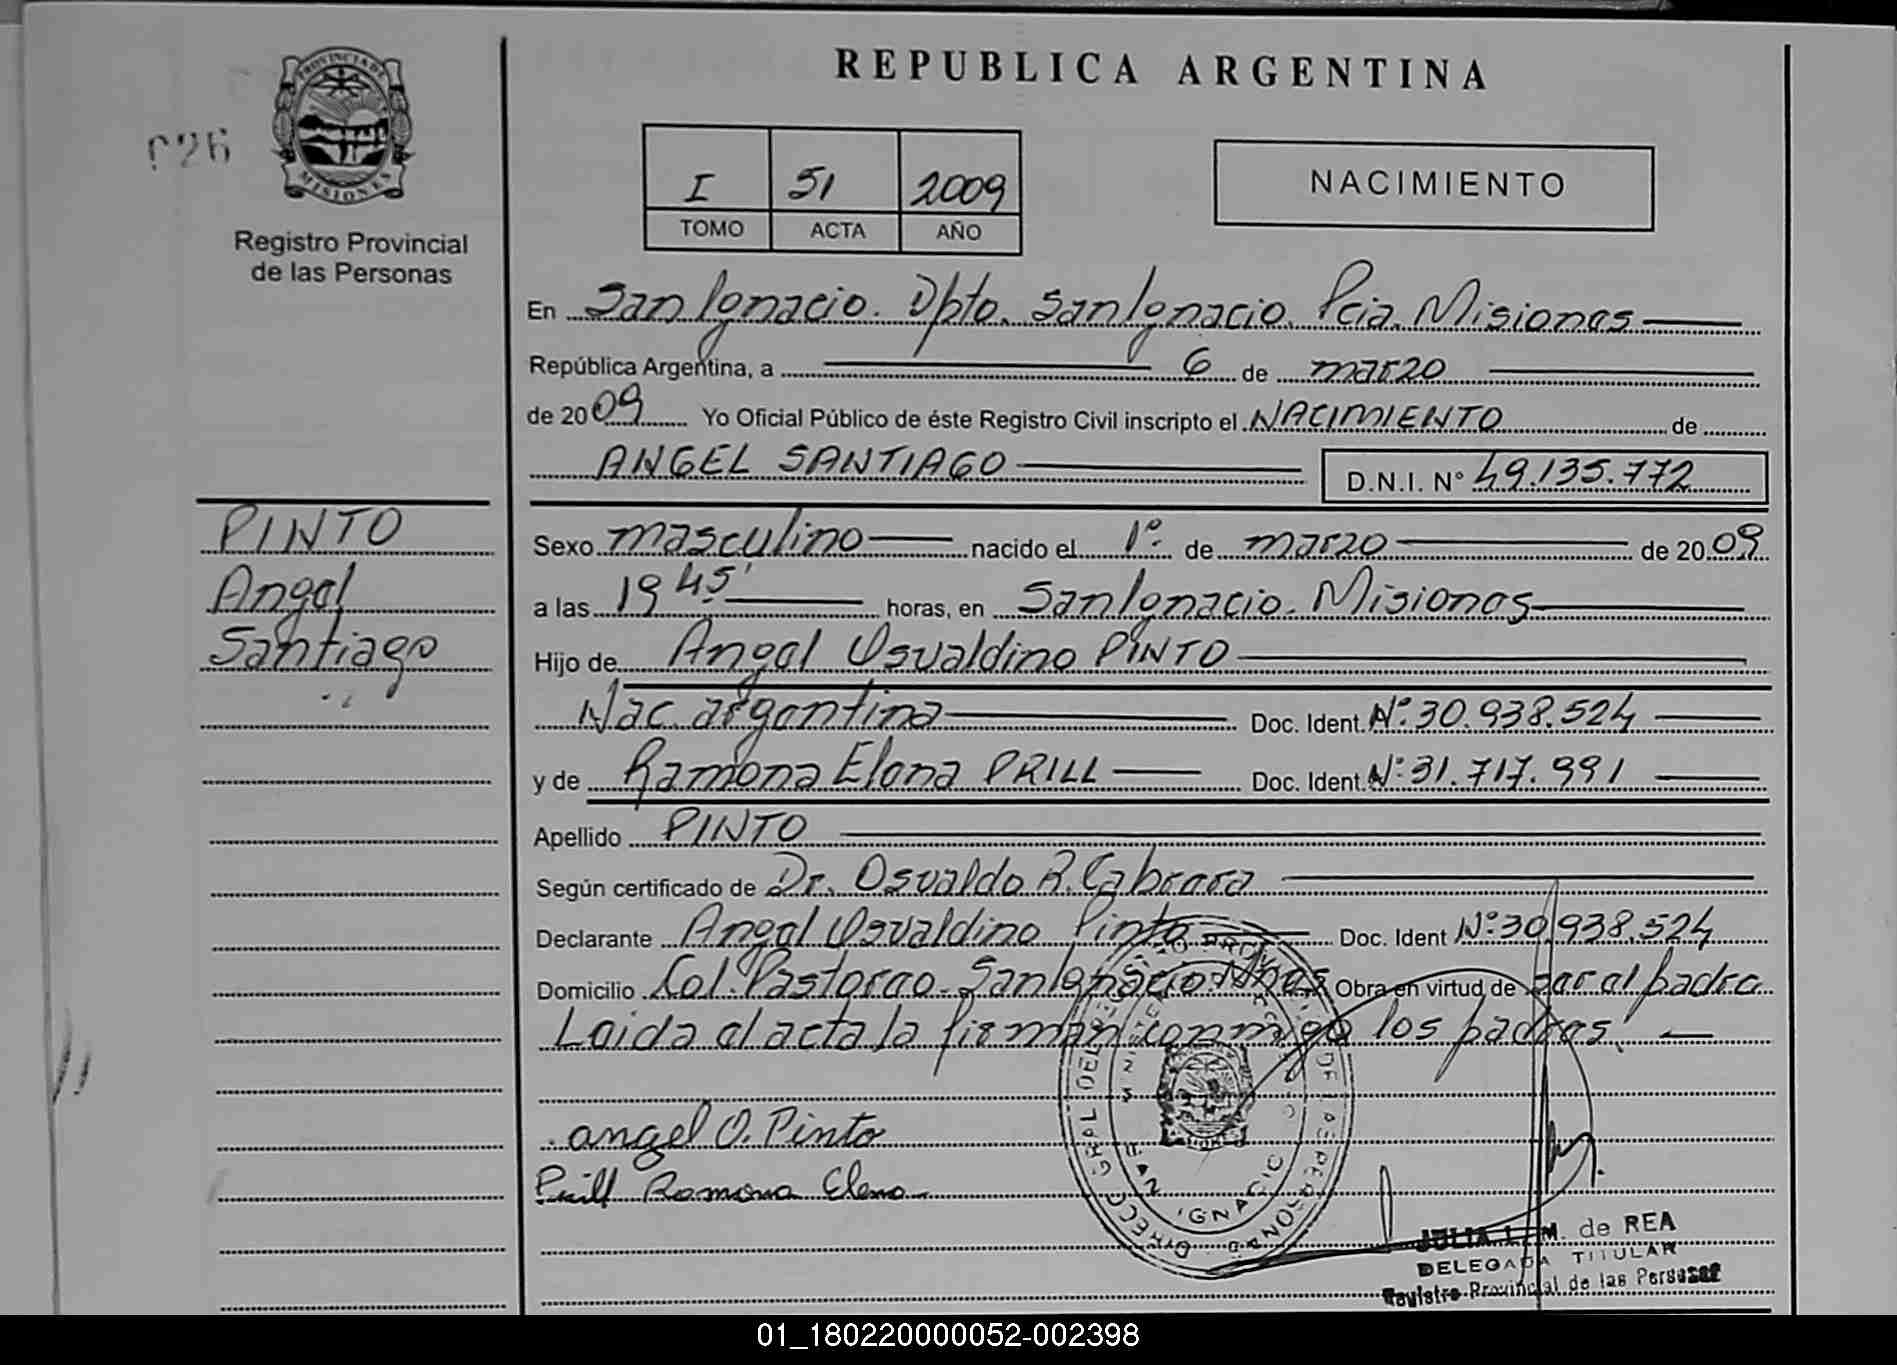 REPUBLICA ARGENTINA
026
PROVINCIA DE
MISIONES
Registro Provincial
de las Personas
I 51 2009
TOMO ACTA AÑO
NACIMIENTO
En San Ignacio. Dpto. San Ignacio. Pcia. Misiones
República Argentina, a 6 de marzo
de 2009 Yo Oficial Público de éste Registro Civil inscripto el NACIMIENTO de
ANGEL SANTIAGO D.N.I. N° 49.135.772
PINTO
Angel
Santiago
Sexo masculino nacido el 1º. de marzo de 2009
a las 19 45' horas, en San Ignacio. Misiones
Hijo de Angel Osvaldino PINTO
Nac. argentina Doc. Ident. Nº. 30.938.524
y de Ramona Elena PRILL Doc. Ident. Nº: 31.717.991
Apellido PINTO
Según certificado de Dr. Osvaldo R. Cabrera
Declarante Angel Osvaldino Pinto Doc. Ident Nº: 30.938.524
Domicilio Col. Pastoreo. San Ignacio. Mnes Obra en virtud de ser el padre
Leida el acta la firman conmigo los padres.
angel O. Pinto
Prill Ramona Elena
IGNACIO
JULIA L. M. de REA
DELEGADA TITULAR
Registro Provincial de las Personas
01_180220000052-002398